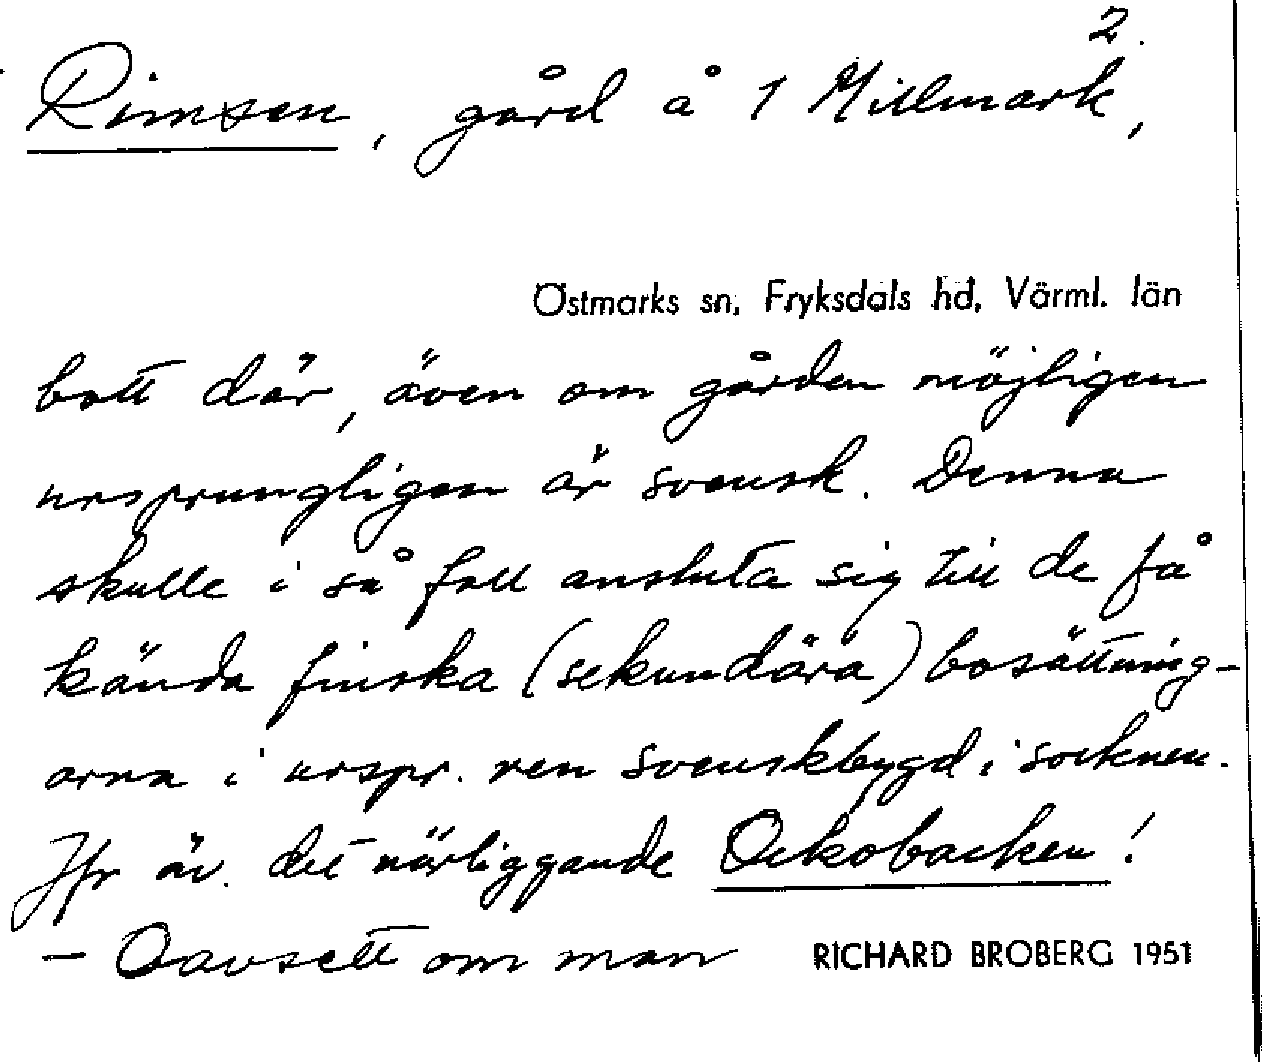 2.
Rimsen, gård å 1 Millmark,
Östmarks sn, Fryksdals hd, Värml. län
bott där, även om gården möjligen
ursprungligen är svensk. Denna
skulle i så fall ansluta sig till de få
kända finska (sekundära) bosättning-
arna i urspr. ren svenskbygd i socknen.
Jfr äv. det närliggande Ockobacken!
- Oavsett om man
RICHARD BROBERG 1951